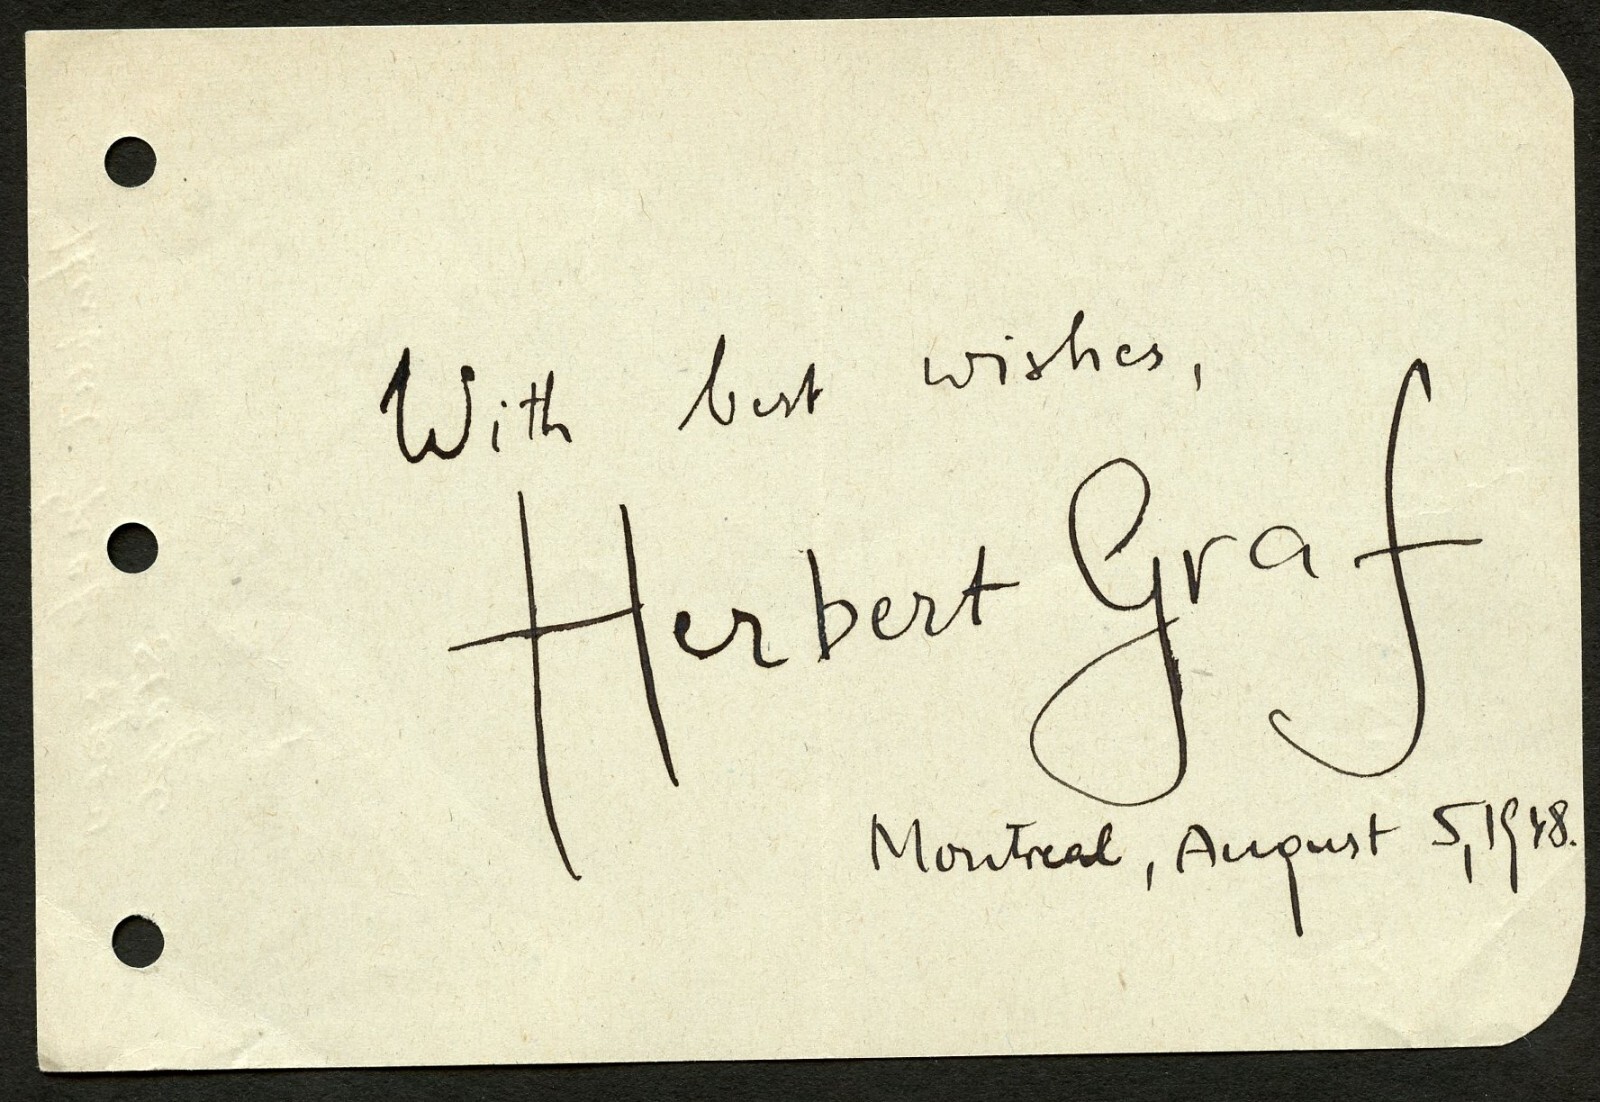 With best wishes,
Herbert Graf
Montreal, August 5, 1948.